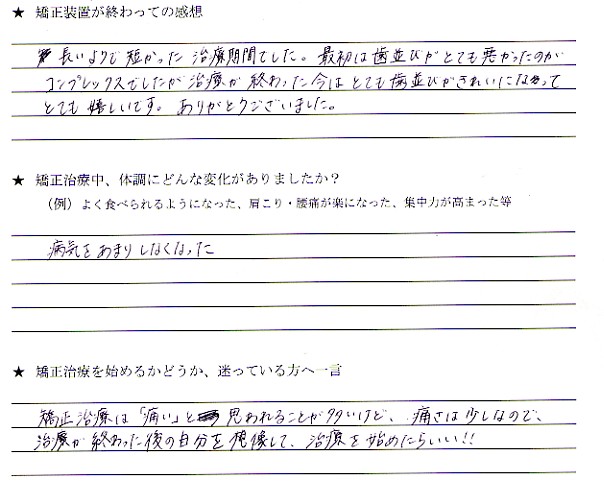 ★ 矯正装置が終わっての感想
長いようで短かった治療期間でした。最初は歯並びがとても悪かったのが
コンプレックスでしたが治療が終わった今はとても歯並びがきれいになって
とても嬉しいです。ありがとうございました。
★ 矯正治療中、体調にどんな変化がありましたか?
(例)よく食べられるようになった、肩こり・腰痛が楽になった、集中力が高まった等
病気をあまりしなくなった
★ 矯正治療を始めるかどうか、迷っている方へ一言
矯正治療は「痛い」と思われることが多いけど、痛さは少しなので、
治療が終わった後の自分を想像して、治療を始めたらいい!!